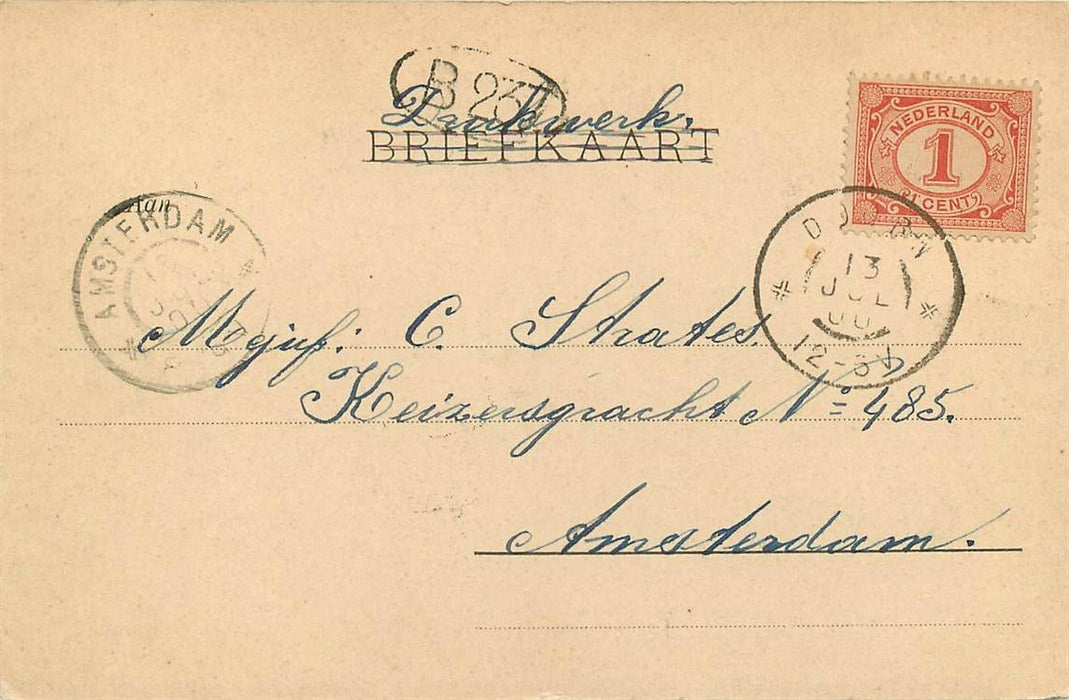 B 23
Drukwerk.
BRIEFKAART
NEDERLAND
1
(1 CENT)
Aan
AMSTERDAM
13
JUL
00
12-3
Mejuf: C. Strates.
Keizersgracht No= 485.
Amsterdam.